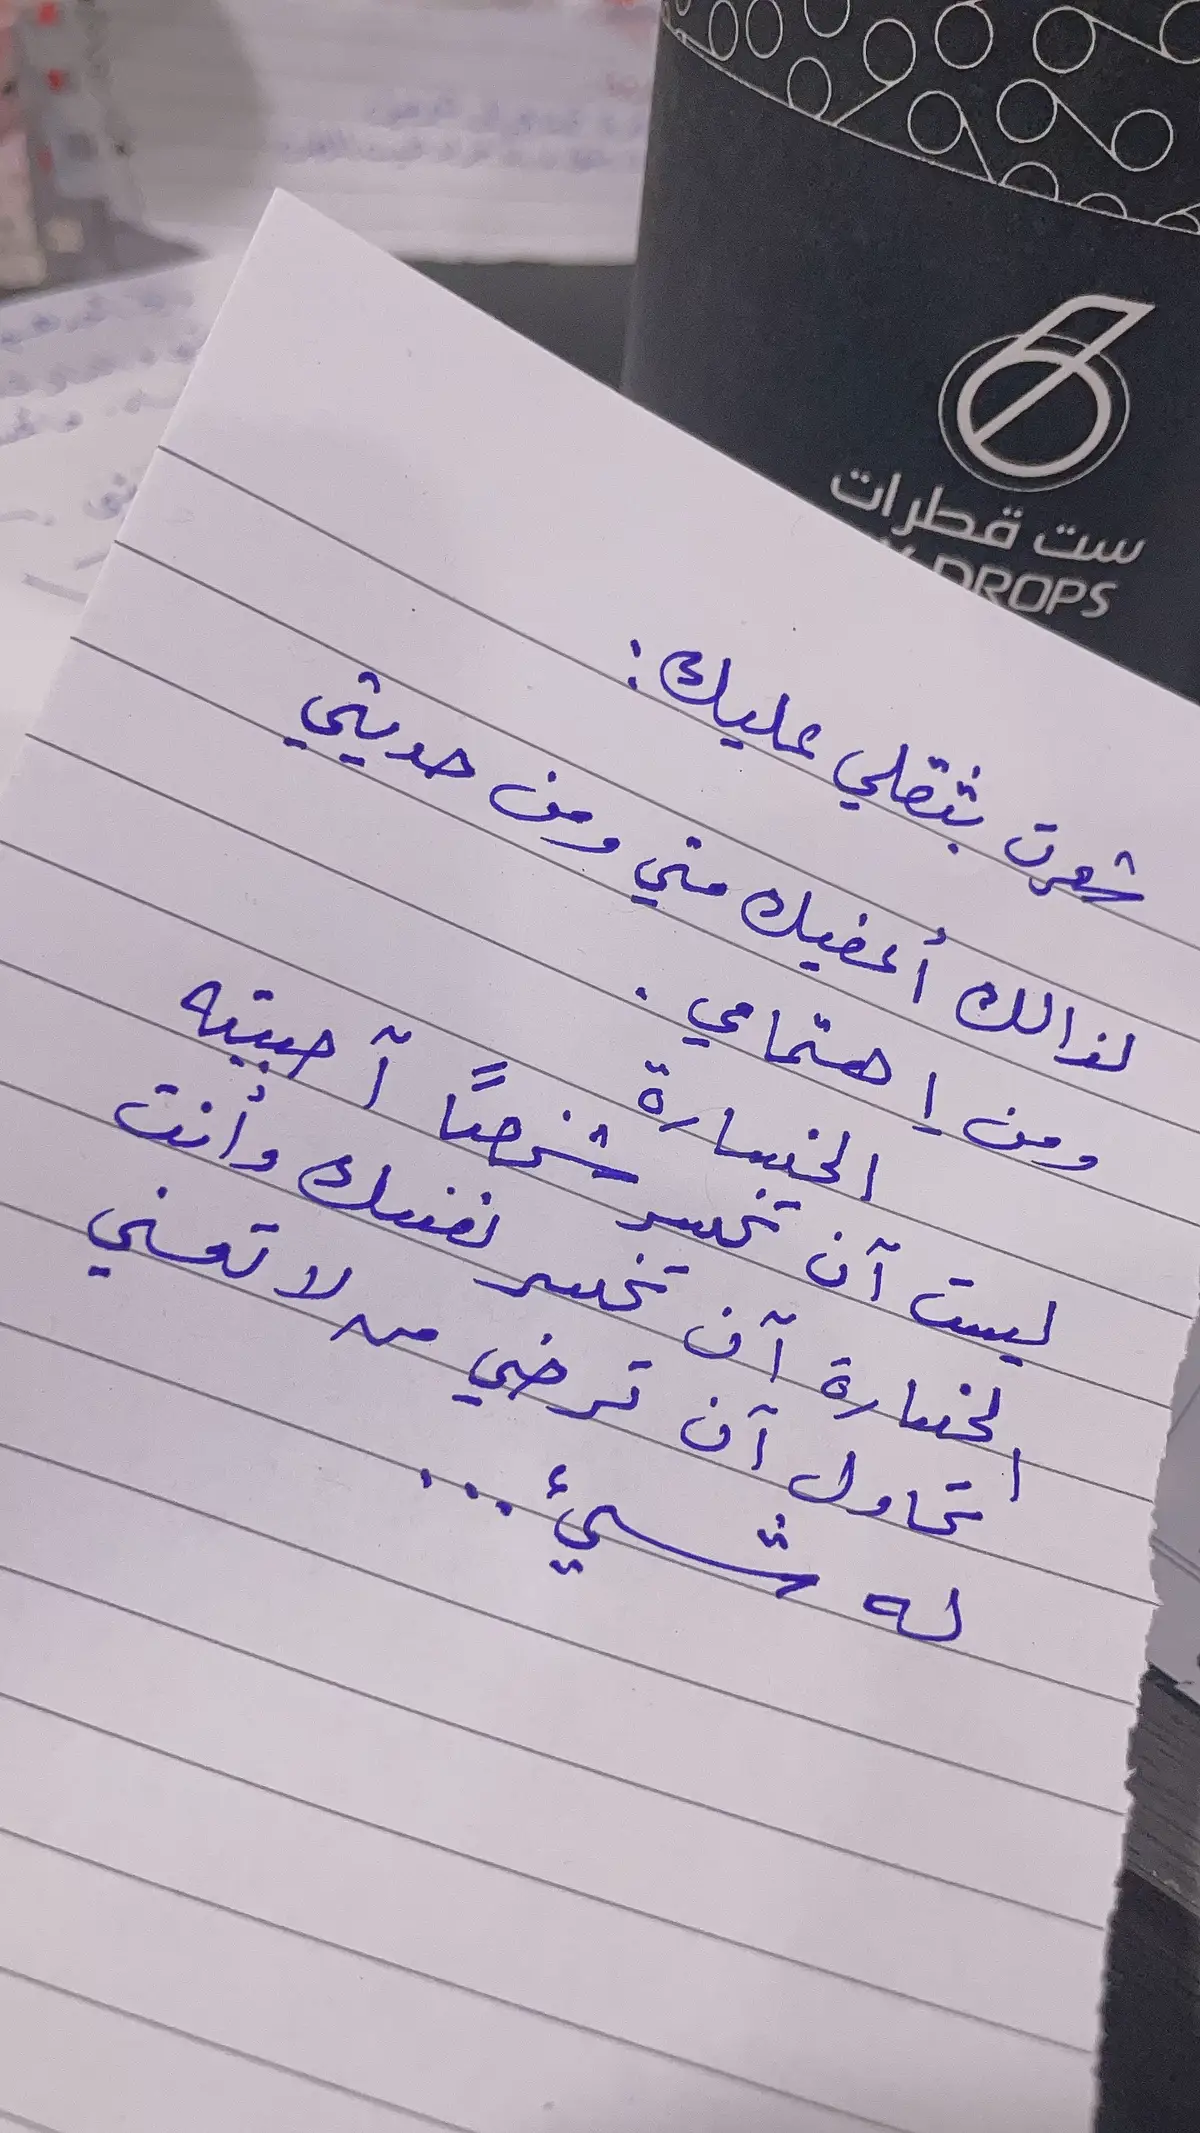 ست قطرات
DROPS
شعرت بثقلي عليك :
لذالك أعفيك مني ومن حديثي
ومن إهتمامي .
الخسارة
ليست آن تخسر شخصاً آحببته
الخسارة آن تخسر نفسك وأنت
تحاول آن ترضي من لا تعني
له شيئ ...